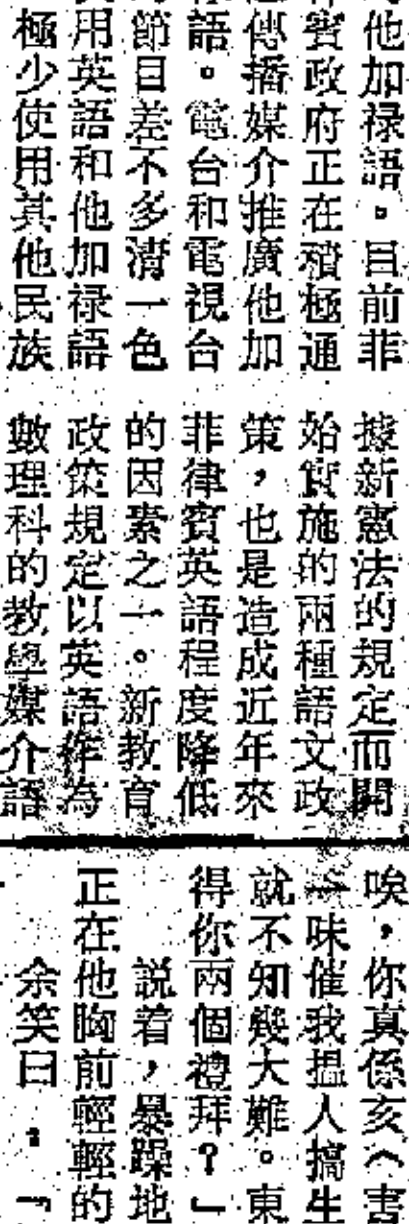 他加禄語。目前菲
賓政府正在積極通
傳播媒介推廣他加
語。電台和電視台
節目差不多清一色
用英語和他加禄語
極少使用其他民族
據新憲法的規定而開
始實施的兩種語文政
策，也是造成近年來
菲律賓英語程度降低
的因素之一。新教育
政策規定以英語作為
數理科的教學媒介語
唉，你真係亥へ
一味催我搵人搞生
就不知幾大難。東
得你兩個禮拜？」
說着，暴躁地
正在他胸前輕輕的
余笑曰：「